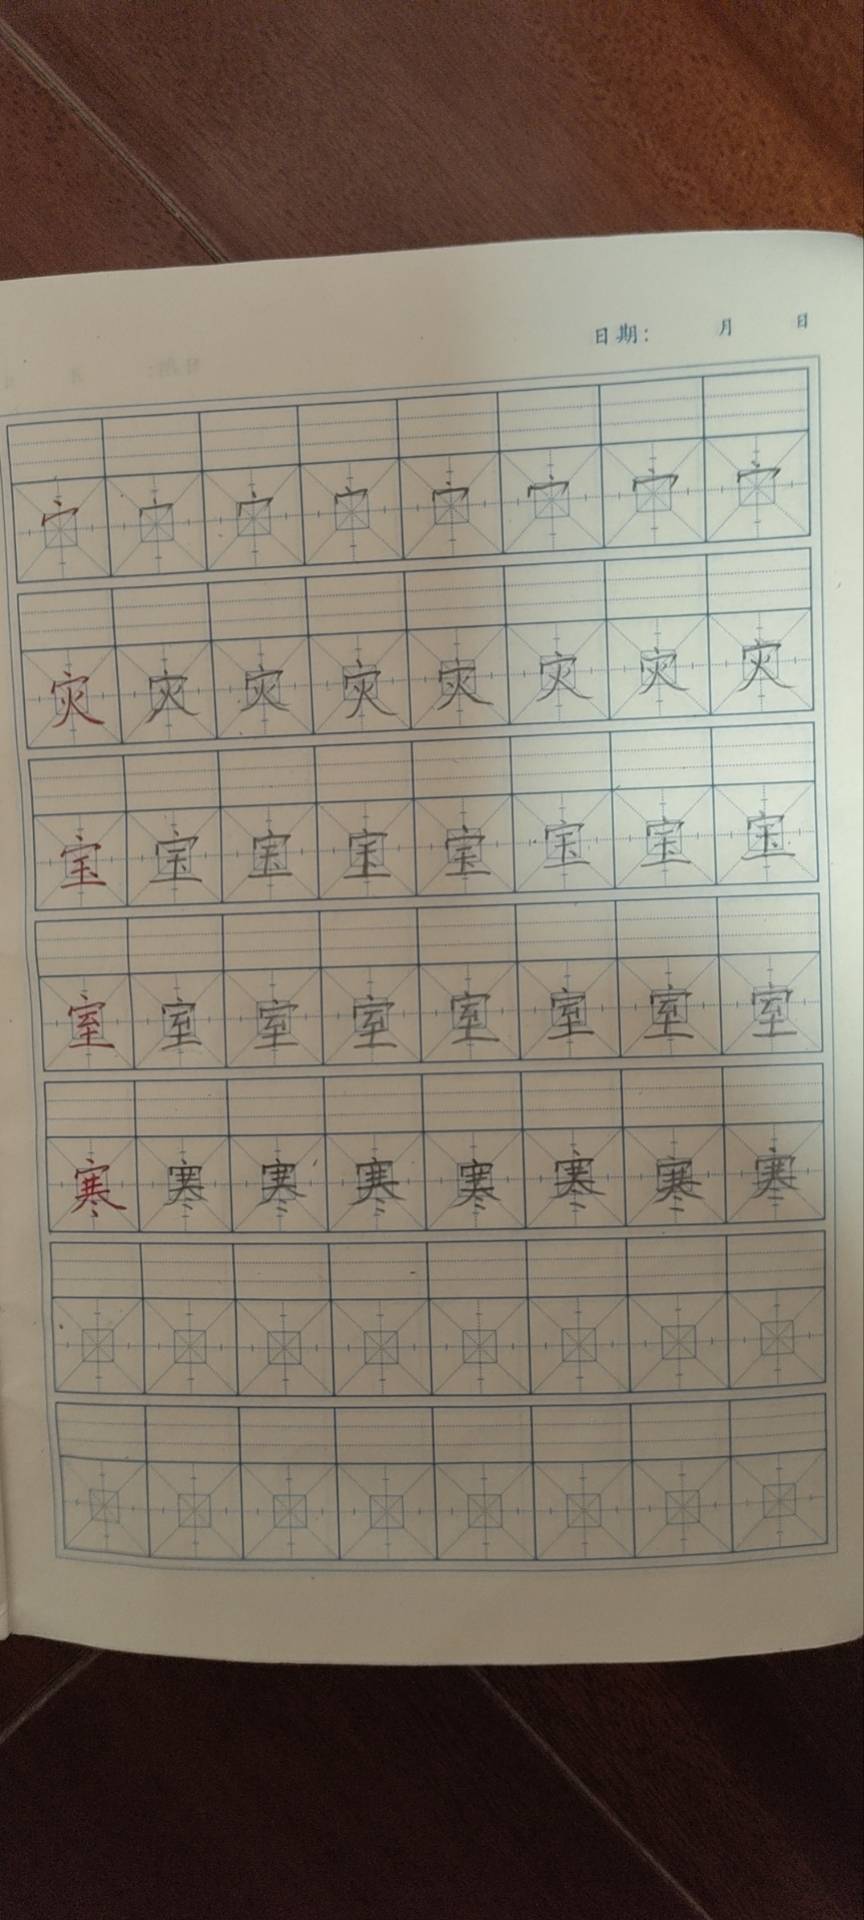 日期： 月 日
宀 宀 宀 宀 宀 宀 宀 宀
灾 灾 灾 灾 灾 灾 灾 灾
宝 宝 宝 宝 宝 宝 宝 宝
室 室 室 室 室 室 室 室
寒 寒 寒 寒 寒 寒 寒 寒